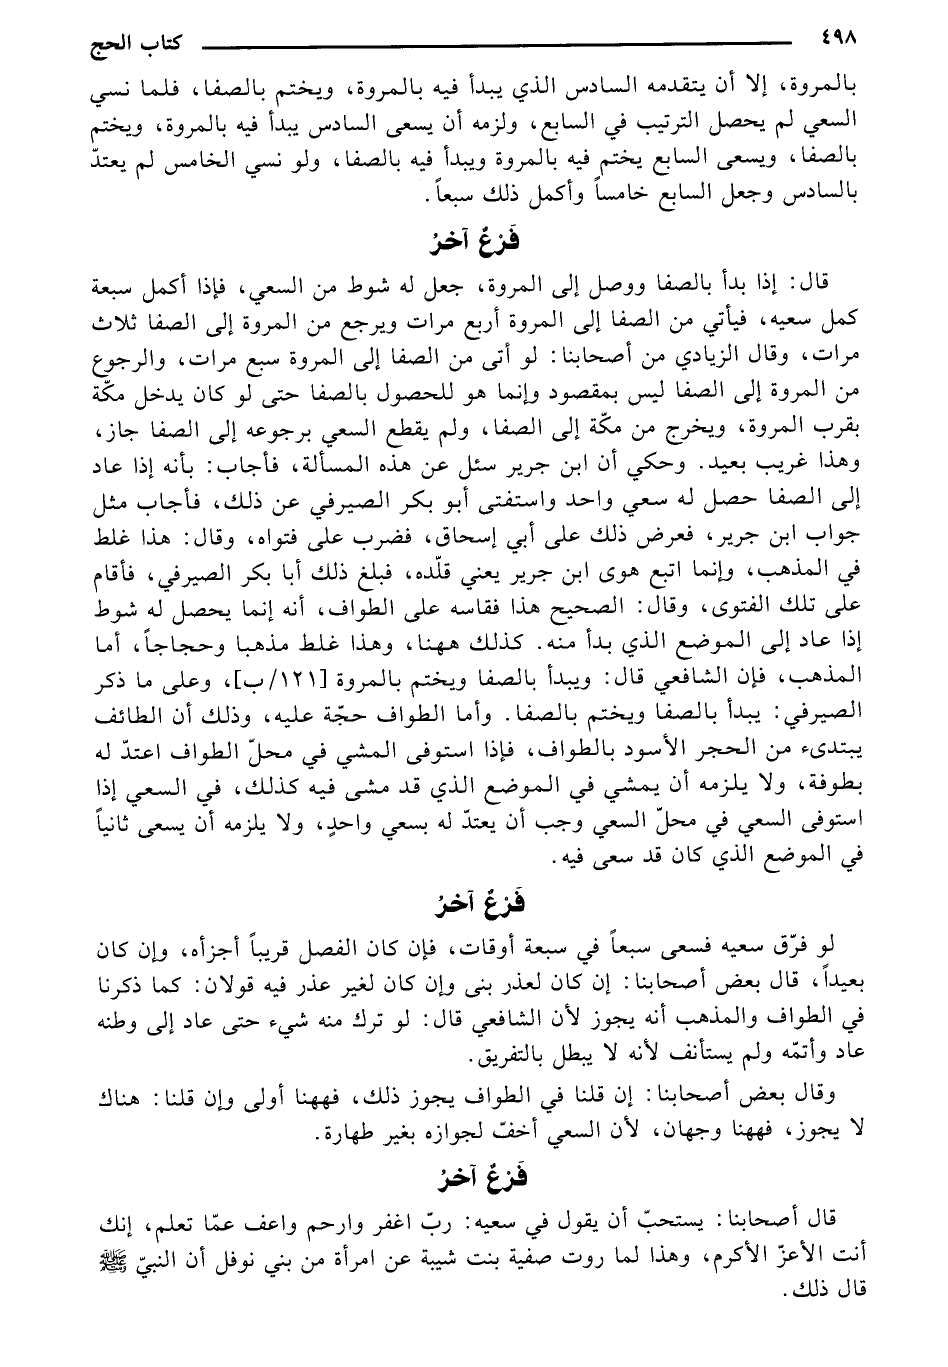 ٤٩٨ كتاب الحج
بالمروة، إلا أن يتقدمه السادس الذي يبدأ فيه بالمروة، ويختم بالصفا، فلما نسي
السعي لم يحصل الترتيب في السابع، ولزمه أن يسعى السادس يبدأ فيه بالمروة، ويختم
بالصفا، ويسعى السابع يختم فيه بالمروة ويبدأ فيه بالصفا، ولو نسي الخامس لم يعتدّ
بالسادس وجعل السابع خامساً وأكمل ذلك سبعاً.
فَرْعٌ آخرُ
قال: إذا بدأ بالصفا ووصل إلى المروة، جعل له شوط من السعي، فإذا أكمل سبعة
كمل سعيه، فيأتي من الصفا إلى المروة أربع مرات ويرجع من المروة إلى الصفا ثلاث
مرات، وقال الزيادي من أصحابنا: لو أتى من الصفا إلى المروة سبع مرات، والرجوع
من المروة إلى الصفا ليس بمقصود وإنما هو للحصول بالصفا حتى لو كان يدخل مكّة
بقرب المروة، ويخرج من مكّة إلى الصفا، ولم يقطع السعي برجوعه إلى الصفا جاز،
وهذا غريب بعيد. وحكي أن ابن جرير سئل عن هذه المسألة، فأجاب: بأنه إذا عاد
إلى الصفا حصل له سعي واحد واستفتى أبو بكر الصيرفي عن ذلك، فأجاب مثل
جواب ابن جرير، فعرض ذلك على أبي إسحاق، فضرب على فتواه، وقال: هذا غلط
في المذهب، وإنما اتبع هوى ابن جرير يعني قلّده، فبلغ ذلك أبا بكر الصيرفي، فأقام
على تلك الفتوى، وقال: الصحيح هذا فقاسه على الطواف، أنه إنما يحصل له شوط
إذا عاد إلى الموضع الذي بدأ منه. كذلك ههنا، وهذا غلط مذهبا وحجاجاً، أما
المذهب، فإن الشافعي قال: ويبدأ بالصفا ويختم بالمروة [١٢١/ب]، وعلى ما ذكر
الصيرفي: يبدأ بالصفا ويختم بالصفا. وأما الطواف حجّة عليه، وذلك أن الطائف
يبتدىء من الحجر الأسود بالطواف، فإذا استوفى المشي في محلّ الطواف اعتدّ له
بطوفة، ولا يلزمه أن يمشي في الموضع الذي قد مشى فيه كذلك، في السعي إذا
استوفى السعي في محلّ السعي وجب أن يعتدّ له بسعي واحدٍ، ولا يلزمه أن يسعى ثانياً
في الموضع الذي كان قد سعى فيه.
فَرْعٌ آخرُ
لو فرّق سعيه فسعى سبعاً في سبعة أوقات، فإن كان الفصل قريباً أجزأه، وإن كان
بعيداً، قال بعض أصحابنا: إن كان لعذر بنى وإن كان لغير عذر فيه قولان: كما ذكرنا
في الطواف والمذهب أنه يجوز لأن الشافعي قال: لو ترك منه شيء حتى عاد إلى وطنه
عاد وأتمّه ولم يستأنف لأنه لا يبطل بالتفريق.
وقال بعض أصحابنا: إن قلنا في الطواف يجوز ذلك، فههنا أولى وإن قلنا: هناك
لا يجوز، فههنا وجهان، لأن السعي أخفّ لجوازه بغير طهارة.
فَرْعٌ آخرُ
قال أصحابنا: يستحبّ أن يقول في سعيه: ربّ اغفر وارحم واعف عمّا تعلم، إنك
أنت الأعزّ الأكرم، وهذا لما روت صفية بنت شيبة عن امرأة من بني نوفل أن النبيّ ﷺ
قال ذلك.